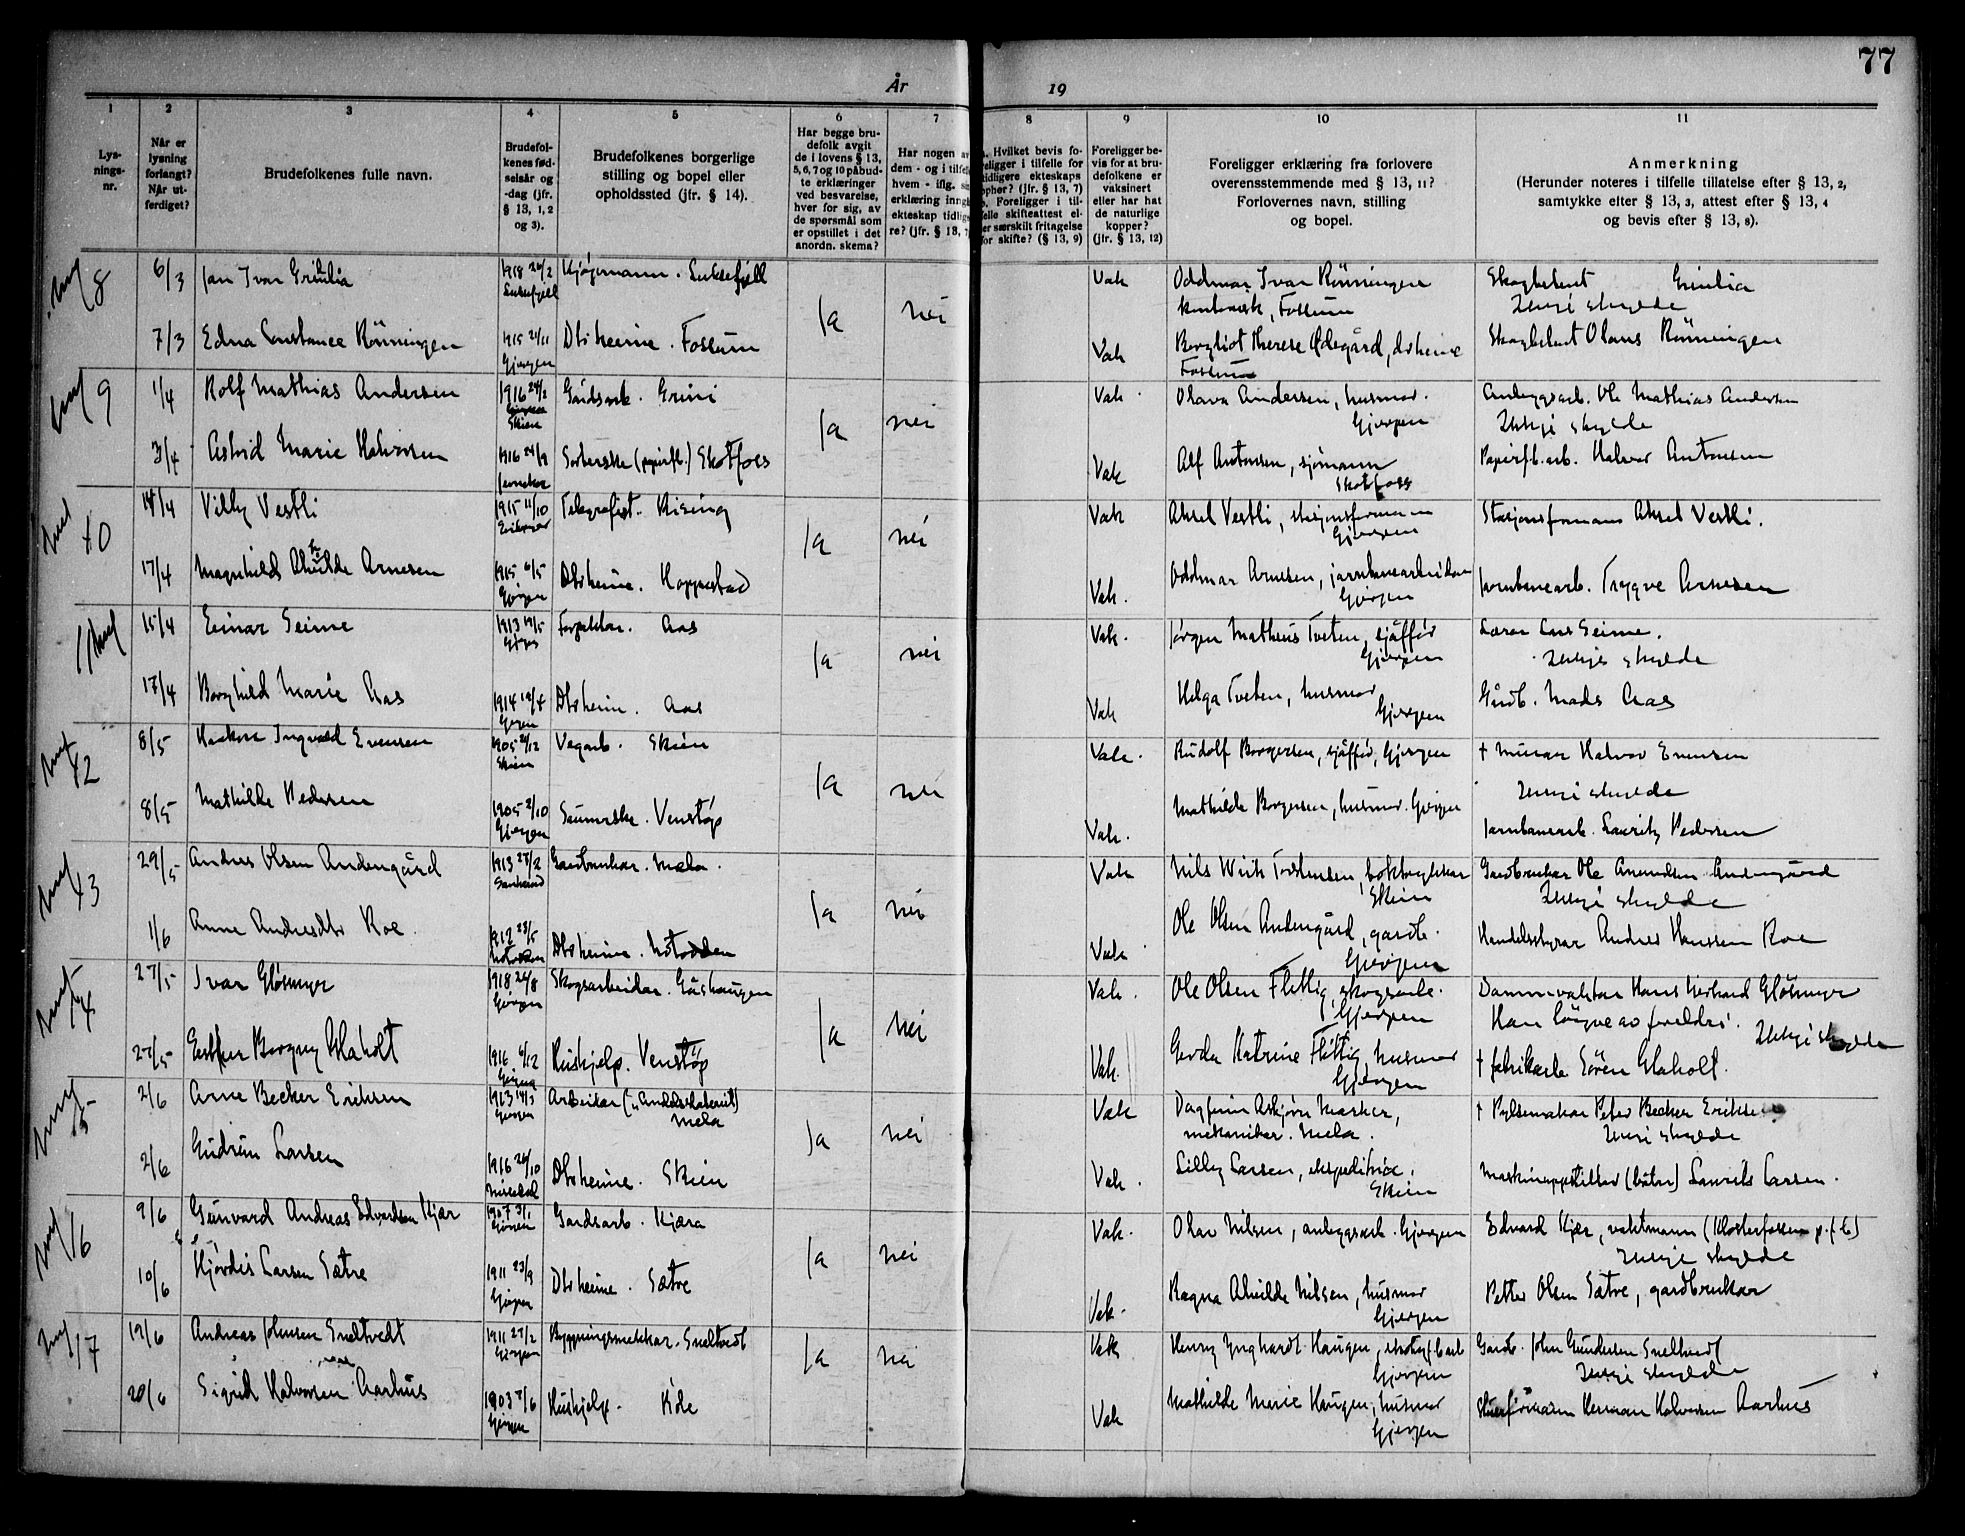 77
År 19
1 2 3 4 5 6 7 8 9 10 11
Lys-
nings-
nr.
Når er
lysning
forlangt?
Når ut-
ferdiget?
Brudefolkenes fulle navn.
Brudefol-
kenes fød-
selsår og
-dag (jfr.
§ 13, 1, 2
og 3).
Brudefolkenes borgerlige
stilling og bopel eller
opholdssted (jfr. § 14).
Har begge bru-
defolk avgit
de i lovens § 13,
5, 6, 7 og 10 påbud-
te erklæringer
ved besvarelse,
hver for sig, av
de spørsmål som
er opstillet i det
anordn. skema?
Har nogen av
dem - og i tilfelle
hvem - iflg. sin
erklæring inngått
ekteskap tidlige-
re? (jfr. § 13, 7)
a. Hvilket bevis fo-
religger i tilfelle for
tidligere ekteskaps
ophør? (jfr. § 13, 7)
b. Foreligger i til-
felle skifteattest el-
ler særskilt fritagelse
for skifte? (§ 13, 9)
Foreligger be-
vis for at bru-
defolkene er
vaksinert
eller har hat
de naturlige
kopper?
(jfr. § 13, 12)
Foreligger erklæring fra forlovere
overensstemmende med § 13, 11?
Forlovernes navn, stilling
og bopel.
Anmerkning
(Herunder noteres i tilfelle tillatelse efter § 13, 2,
samtykke efter § 13, 3, attest efter § 13, 4
og bevis efter § 13, 8).
8 6/3 Jan Ivar Grinilia 1918 26/2 Luksefjell. Luksefjell Ja nei Vak Oddmar Ivar Rönningen Skogbetent Grinilia
Fossum Ikkje skylde
7/3 Edna Constance Rönningen 1915 21/11 Gjerpen Dtr heime. Fossum Vak Borghot Therese Ødegård, dr heime Skogbetent Olaus Rönningen
Fossum
9 1/4 Rolf Mathias Andersen 1916 24/2 Skien Gardsarb. Grini Ja nei Vak. Olava Andersen, husmor. Anleggsarb. Ole Mathias Andersen
Gjerpen Ikkje skylde
3/4 Astrid Marie Halvorsen 1916 24/9 Sorterske (papirfb.) Skotfoss Vak Alf Antonsen, sjömann Papirfb.arb. Halvor Antonsen
Skotfoss
10 14/4 Villy Vestli 1915 11/10 Telegrafist. Rising Ja nei Vak Aksel Vestli, stasjonsformann Stasjonsformann Aksel Vestli.
Gjerpen
17/4 Magnhild Arnesen 1915 6/5 Gjerpen Dtr heime. Hoppestad Vak. Oddmar Arnesen, jarnbanearbeidar Jarnbanearb. Trygve Arnesen
Gjerpen
11 15/4 Einar Seime 1913 19/5 Forpaktar. Aas Ja nei Vak. Jörgen Matheus Tveten, sjåffør Lærar Lars Seime.
Gjerpen Ikkje skylde
17/4 Borghild Marie Aas 1914 19/4 Gjerpen Dtr heime. Aas Vak Helga Tveten, husmor Gardb. Mads Aas
Gjerpen
12 8/5 Haakon Ingvald Evensen 1905 21/12 Skien Vegarb. Skien Ja nei Vak. Rudolf Borgersen, sjåffør, Gjerpen † Murar Halvor Evensen
Ikkje skylde
8/5 Mathilde Pedersen 1905 2/10 Gjerpen Saumerske. Venstöp Vak. Mathilde Borgersen, husmor. Gjerpen Jarnbanearb. Lauritz Pedersen
13 29/5 Andres Olsen Andengård 1913 28/2 Sauherad Gardbrukar. Mæla. Ja nei Vak Nils Torstensen, boktrykkar Gardbrukar Ole Amundsen Andengård
Skien Ikkje skylde
1/6 Anne Andresdtr Roe 1912 23/5 Notodden Dtr heime. Notodden Vak Ole Olsen Andengård, gardb. Handelsstyrar Andres Hanssen Roe
Gjerpen
14 27/5 Ivar Glösmyr 1918 26/8 Gjerpen Skogsarbeidar. Gåshaugen Ja nei Vak. Ole Olsen Flittig, skogsarb. Damvaktar Hans Gerhard Glösmyr
Gjerpen Han löyve av foreldri. Ikkje skylde
27/5 Esther Borgny Glaholt 1916 6/12 Gjerpen Hushjelp. Venstöp Vak. Gerda Katrine Flittig, husmor † fabrikarb. Sören Glaholt.
Gjerpen
15 2/6 Arne Becker Eriksen 1913 14/3 Gjerpen Arbeidar Mæla Ja nei Vak Dagfinn Asbjörn Masker, † Pylsemakar Peter Becker Eriksen
mekaniker. Mæla. Ikkje skylde
2/6 Gudrun Larsen 1916 26/10 Dtr heime. Skien Vak. Lilly Larsen, ekspeditrise. Maskinoppstillar Laurits Larsen.
Skien
16 9/6 Gunvard Andreas Edvardsen Kjær 1907 3/1 Gjerpen Gardsarb. Kjæra Ja nei Vak. Olav Nilsen, anleggsarb. Gjerpen Edvard Kjær, vaktmann (Klosterfossen p.fb)
Ikkje skylde
10/6 Hjördis Larsen Sætre 1911 23/9 Gjerpen Dtr heime. Sætre Vak. Ragna Alvilde Nilsen, husmor Petter Olsen Sætre, gardbrukar
Gjerpen
17 19/6 Andreas Johnsen Sneltvedt 1911 27/2 Gjerpen Byggningssnekkar. Sneltvedt Ja nei Vak Henry Ynghardt Haugen, skotøyfb.arb Gardb. John Gundersen Sneltvedt
Gjerpen Ikkje skylde
20/6 Sigrid Halvorsen Aarhus 1903 7/6 Gjerpen Hushjelp. Vak Mathilde Marie Haugen, husmor Herman Halvorsen Aarhus
Gjerpen